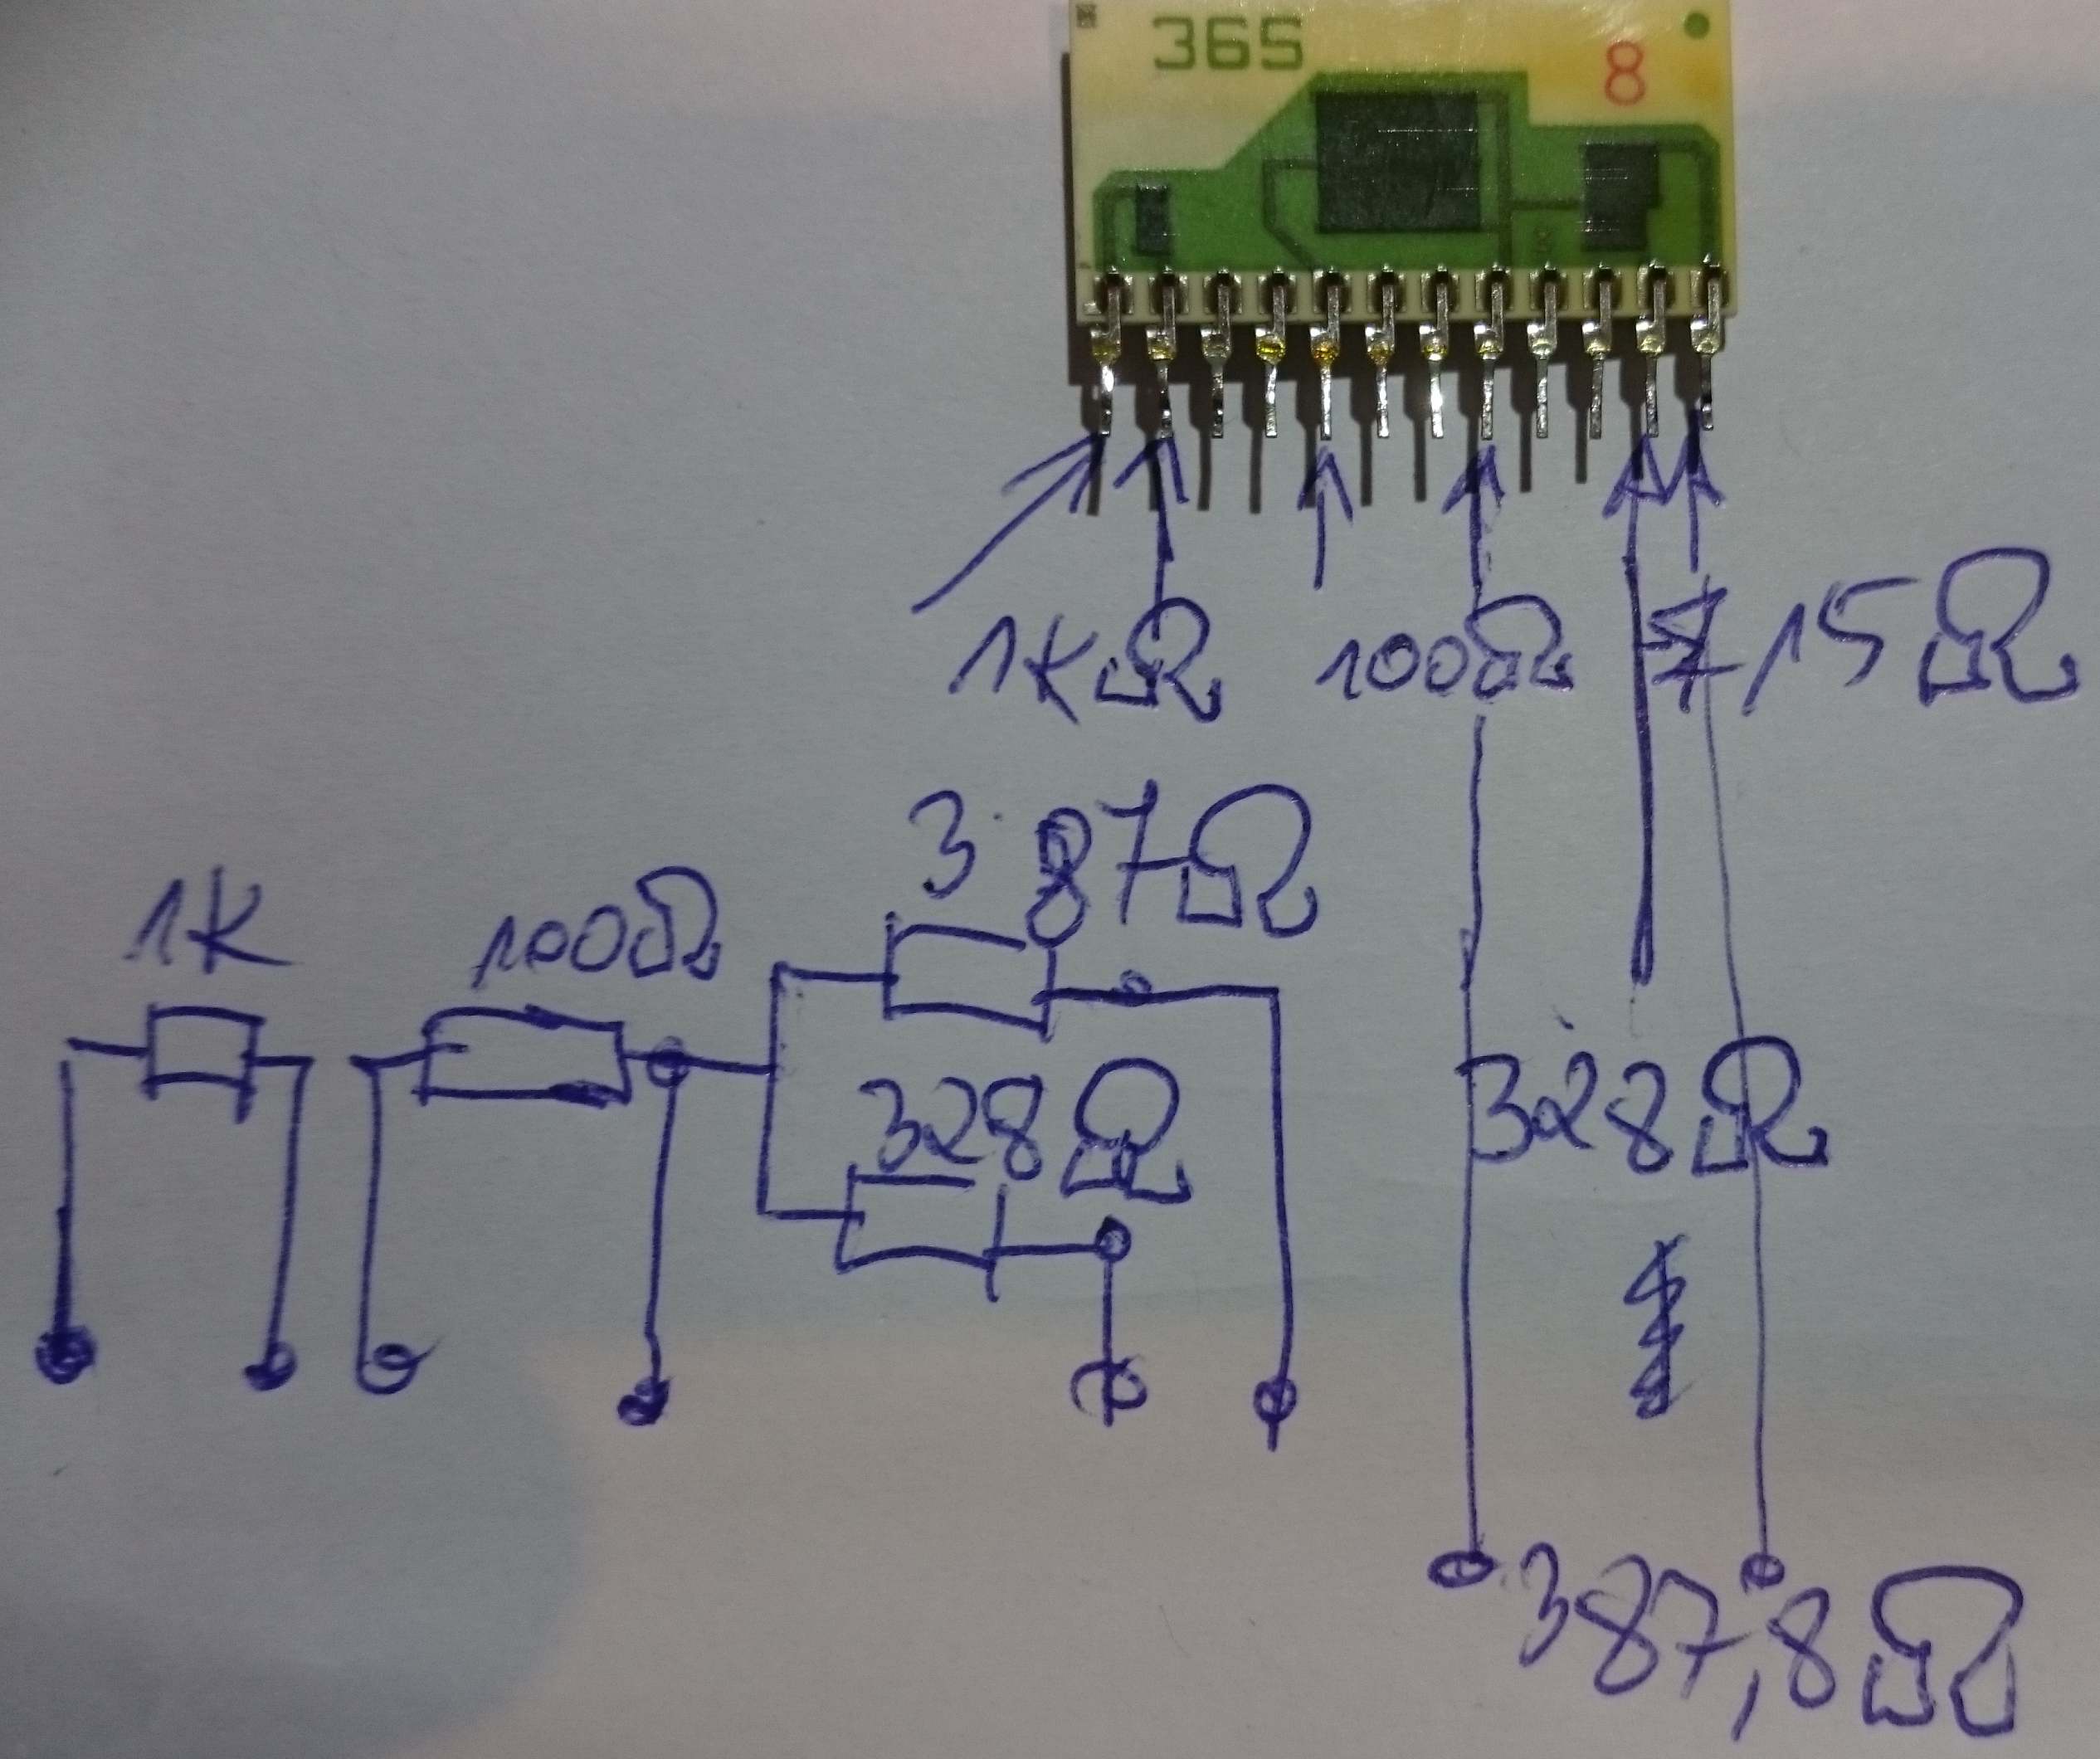 365
8
1KΩ 100Ω 715Ω
387Ω
1K 100Ω
328Ω 328Ω
387,8Ω